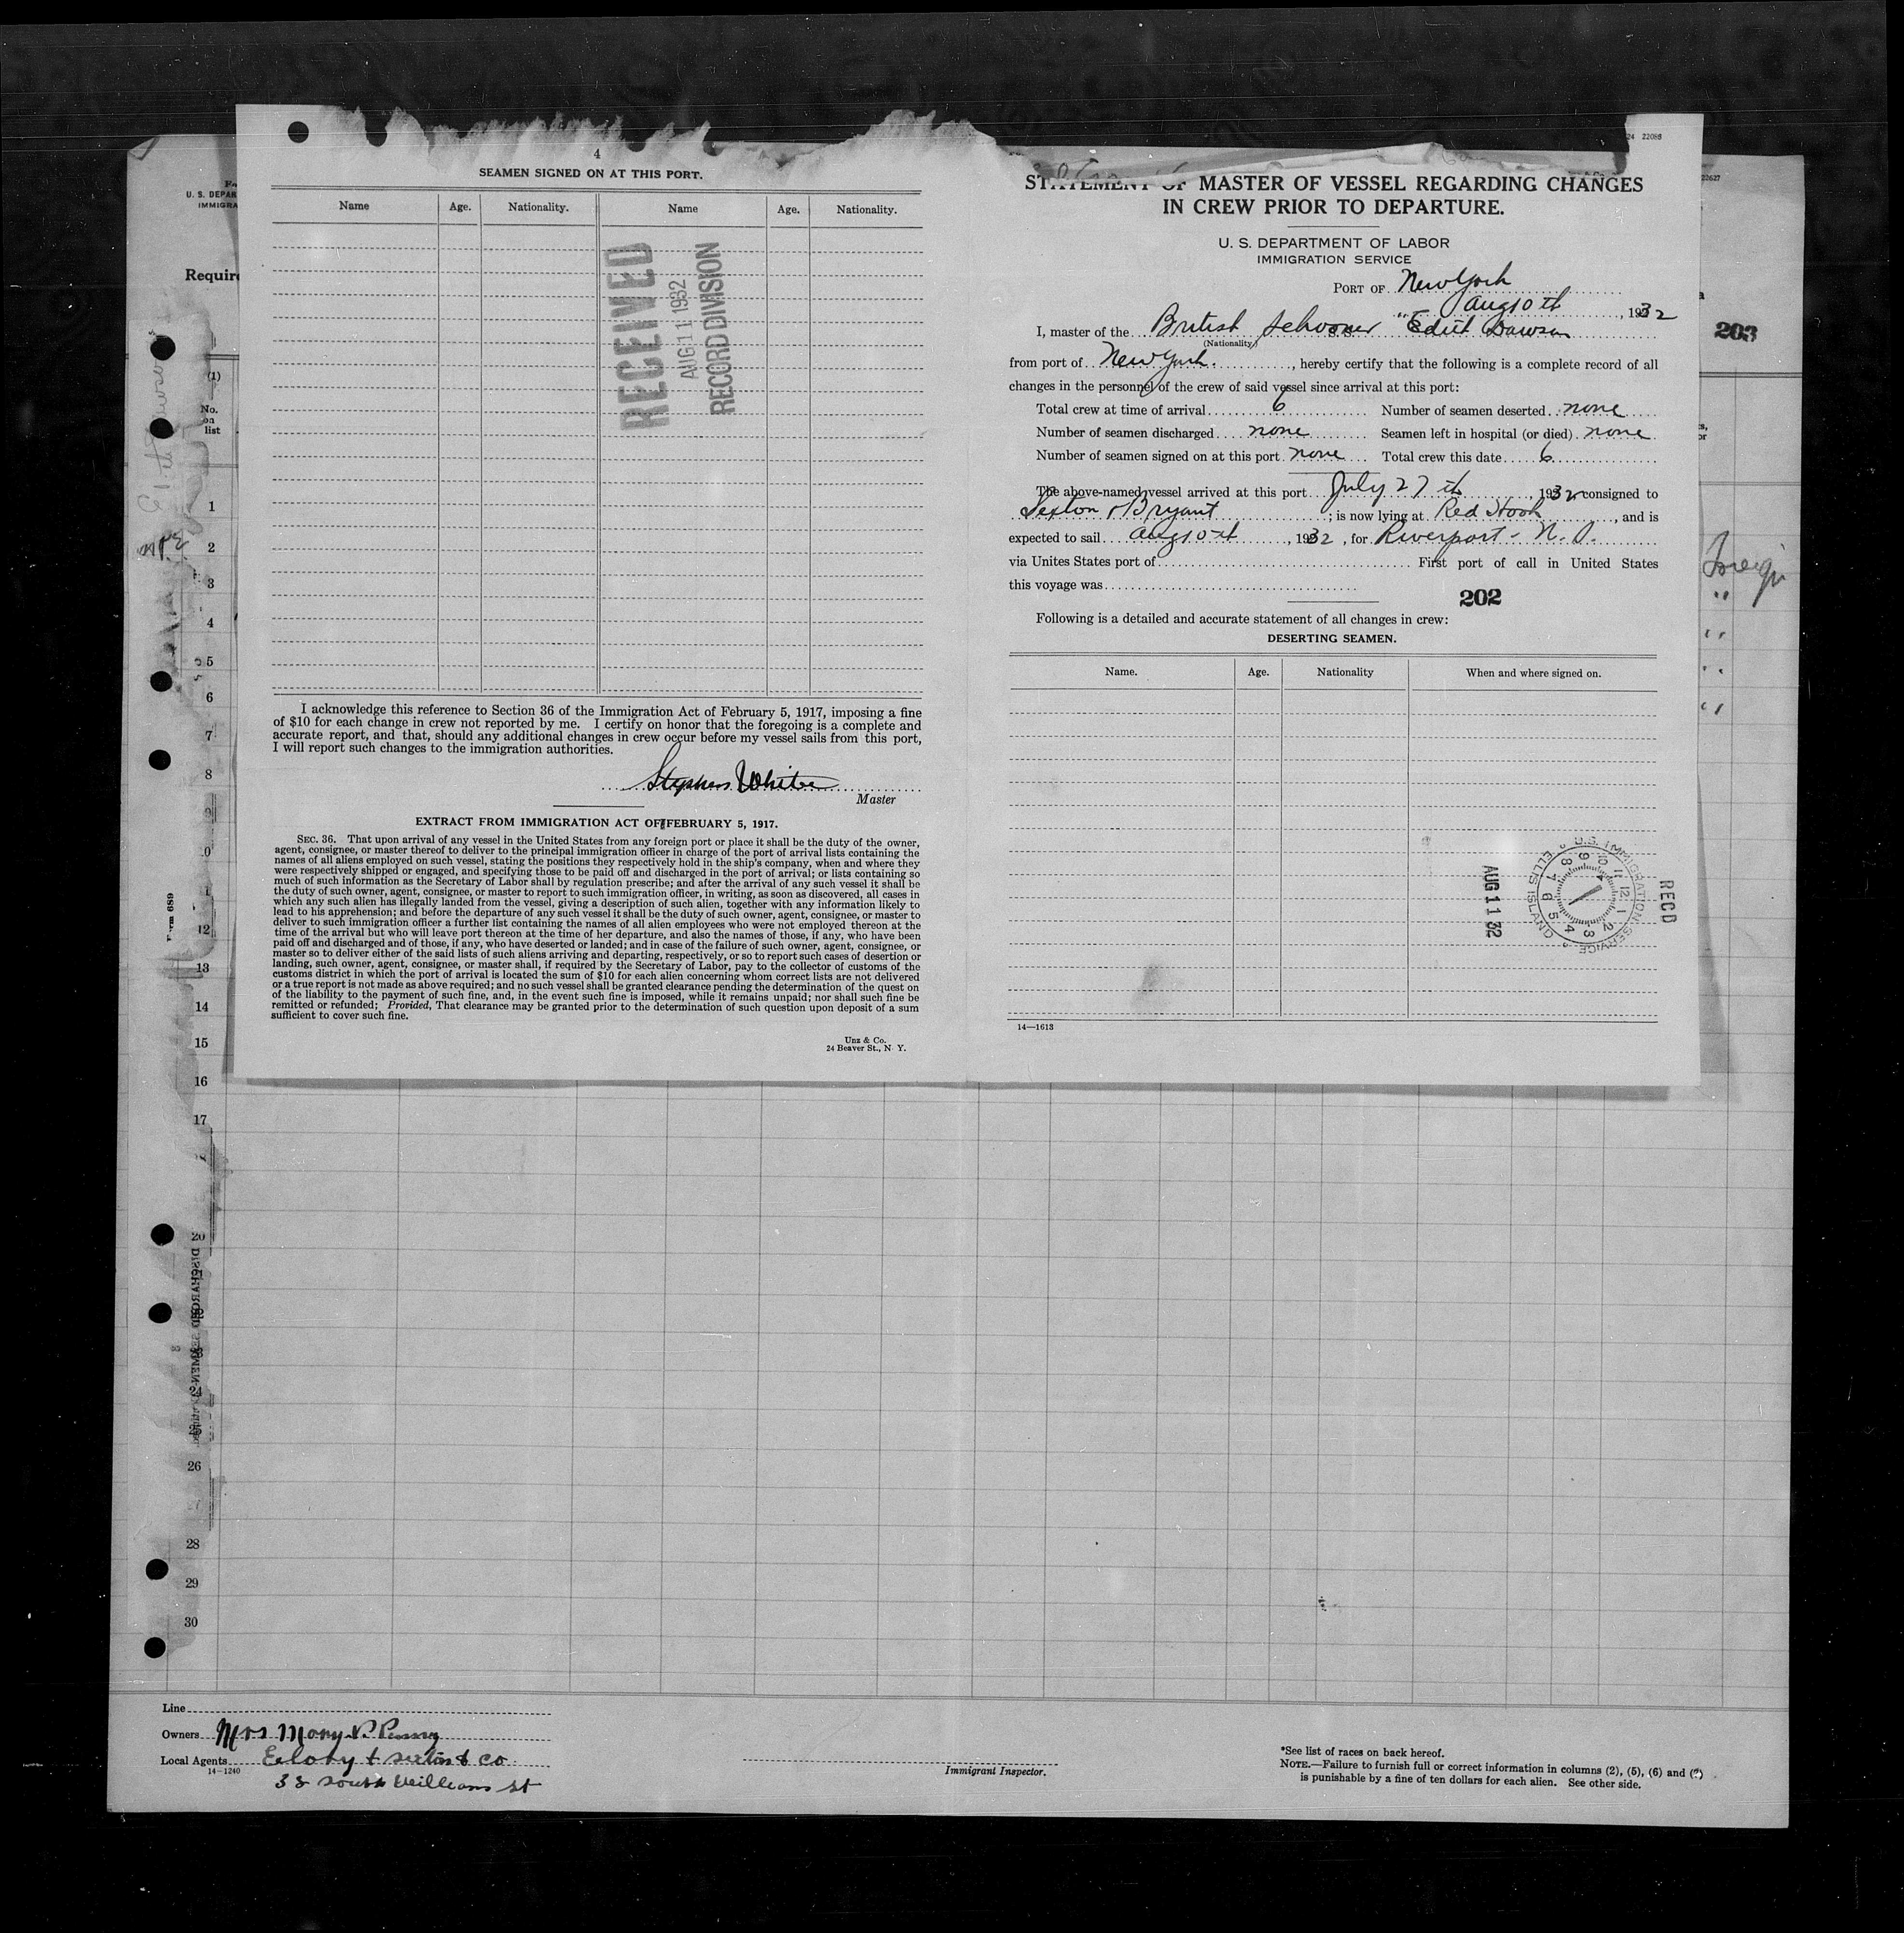 4
SEAMEN SIGNED ON AT THIS PORT.
Name Age. Nationality. Name Age. Nationality.
RECEIVED
AUG 11 1932
RECORD DIVISION
I acknowledge this reference to Section 36 of the Immigration Act of February 5, 1917, imposing a fine
of $10 for each change in crew not reported by me. I certify on honor that the foregoing is a complete and
accurate report, and that, should any additional changes in crew occur before my vessel sails from this port,
I will report such changes to the immigration authorities.
Stephen White
Master
EXTRACT FROM IMMIGRATION ACT OF FEBRUARY 5, 1917.
SEC. 36. That upon arrival of any vessel in the United States from any foreign port or place it shall be the duty of the owner,
agent, consignee, or master thereof to deliver to the principal immigration officer in charge of the port of arrival lists containing the
names of all aliens employed on such vessel, stating the positions they respectively hold in the ship's company, when and where they
were respectively shipped or engaged, and specifying those to be paid off and discharged in the port of arrival; or lists containing so
much of such information as the Secretary of Labor shall by regulation prescribe; and after the arrival of any such vessel it shall be
the duty of such owner, agent, consignee, or master to report to such immigration officer, in writing, as soon as discovered, all cases in
which any such alien has illegally landed from the vessel, giving a description of such alien, together with any information likely to
lead to his apprehension; and before the departure of any such vessel it shall be the duty of such owner, agent, consignee, or master to
deliver to such immigration officer a further list containing the names of all alien employees who were not employed thereon at the
time of the arrival but who will leave port thereon at the time of her departure, and also the names of those, if any, who have been
paid off and discharged and of those, if any, who have deserted or landed; and in case of the failure of such owner, agent, consignee, or
master so to deliver either of the said lists of such aliens arriving and departing, respectively, or so to report such cases of desertion or
landing, such owner, agent, consignee, or master shall, if required by the Secretary of Labor, pay to the collector of customs of the
customs district in which the port of arrival is located the sum of $10 for each alien concerning whom correct lists are not delivered
or a true report is not made as above required; and no such vessel shall be granted clearance pending the determination of the quest on
of the liability to the payment of such fine, and, in the event such fine is imposed, while it remains unpaid; nor shall such fine be
remitted or refunded; Provided, That clearance may be granted prior to the determination of such question upon deposit of a sum
sufficient to cover such fine.
Unz & Co.
24 Beaver St., N. Y.
24 22086
STATEMENT OF MASTER OF VESSEL REGARDING CHANGES
IN CREW PRIOR TO DEPARTURE.
U. S. DEPARTMENT OF LABOR
IMMIGRATION SERVICE
PORT OF New York
Aug 10 th, 1932
I, master of the British Schooner "Edith Dawson
(Nationality)
from port of New York., hereby certify that the following is a complete record of all
changes in the personnel of the crew of said vessel since arrival at this port:
Total crew at time of arrival 6 Number of seamen deserted none
Number of seamen discharged none Seamen left in hospital (or died) none
Number of seamen signed on at this port none Total crew this date 6
The above-named vessel arrived at this port July 27 th, 1932 consigned to
Sexton & Bryant; is now lying at Red Hook, and is
expected to sail Aug 10 th, 1932, for Riverport - N. S.
via Unites States port of First port of call in United States
this voyage was
202
Following is a detailed and accurate statement of all changes in crew:
DESERTING SEAMEN.
Name. Age. Nationality When and where signed on.
U.S. IMMIGRATION SERVICE ELLIS ISLAND
12 1 2 3 4 5 6 7 8 9 10 11
REC'D
AUG 11 32
14—1613
22627
203
U. S. DEPAR
IMMIGRA
Require
(1)
No.
on
list
1
2
3
4
5
6
7
8
9
10
11
12
13
14
15
16
17
20
26
28
29
30
Form 689
DISCHARGED SEAMEN
Foreign
"
"
"
"
Line
Owners Mrs Mary P. Penny
Local Agents & Sexton & Co
14-1240
38 South Williams St
Immigrant Inspector.
*See list of races on back hereof.
NOTE.—Failure to furnish full or correct information in columns (2), (5), (6) and (7)
is punishable by a fine of ten dollars for each alien. See other side.